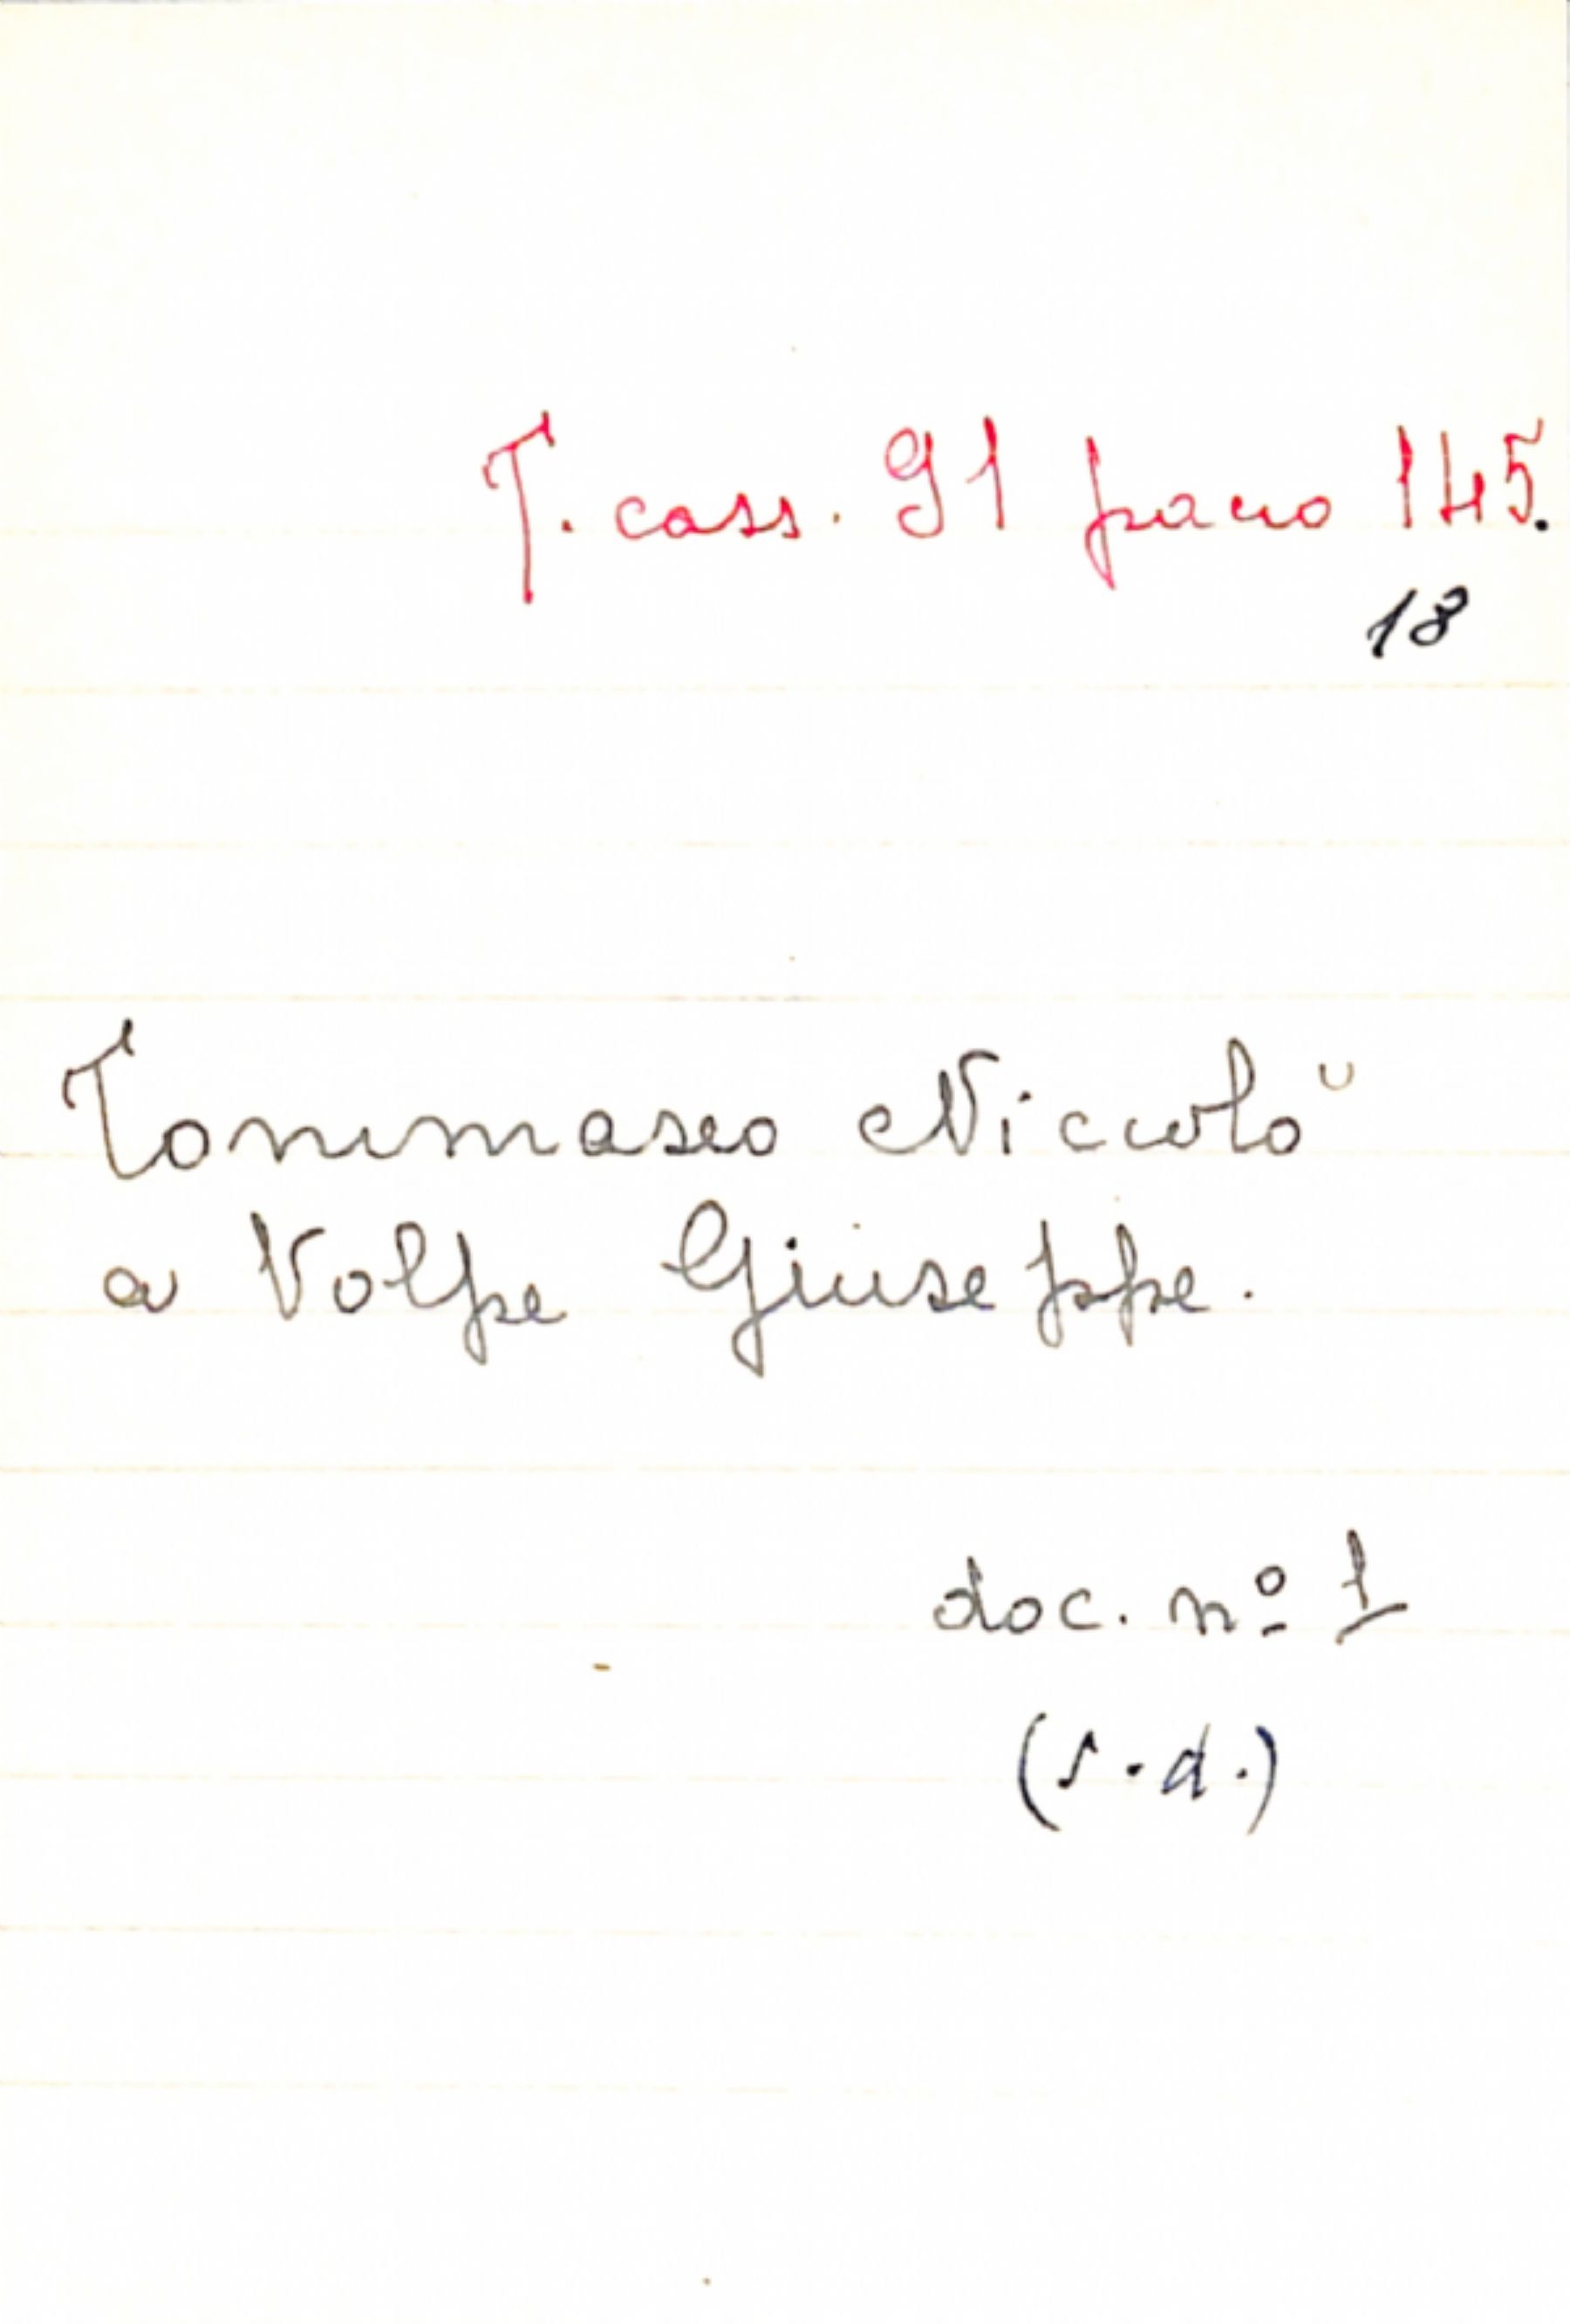 T. cass. 91 pacco 145.
18
Tommaseo Niccolò
a Volpe Giuseppe.
doc. nº 1
(s.d.)